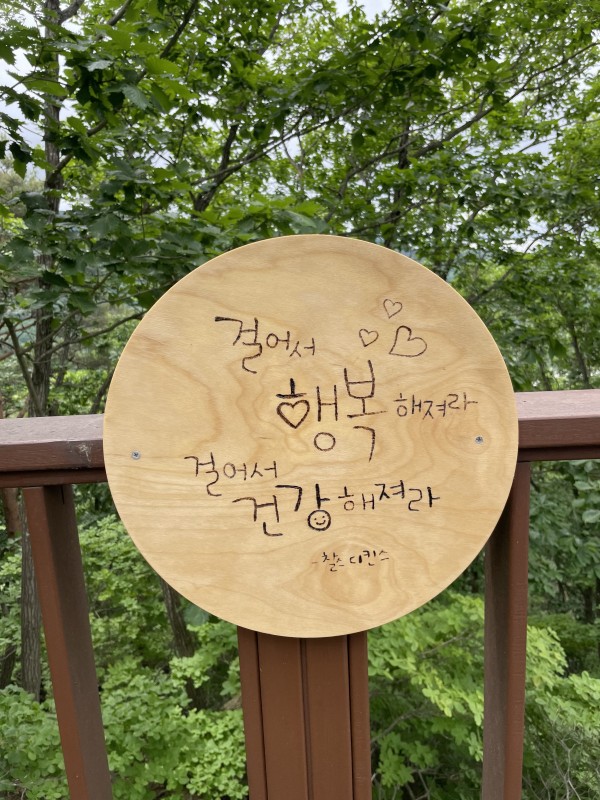 걸어서
행복해져라
걸어서
건강해져라
- 찰스 디킨스